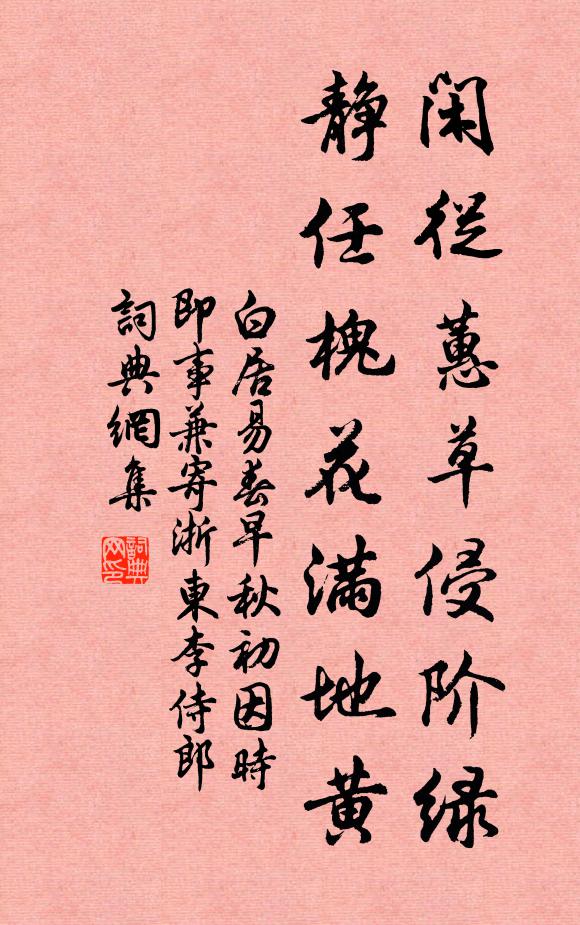 闲從蕙草侵阶绿
静任槐花满地黄
白居易春早秋初因時
即事兼寄浙東李侍郎
詞典網集
詞典网印